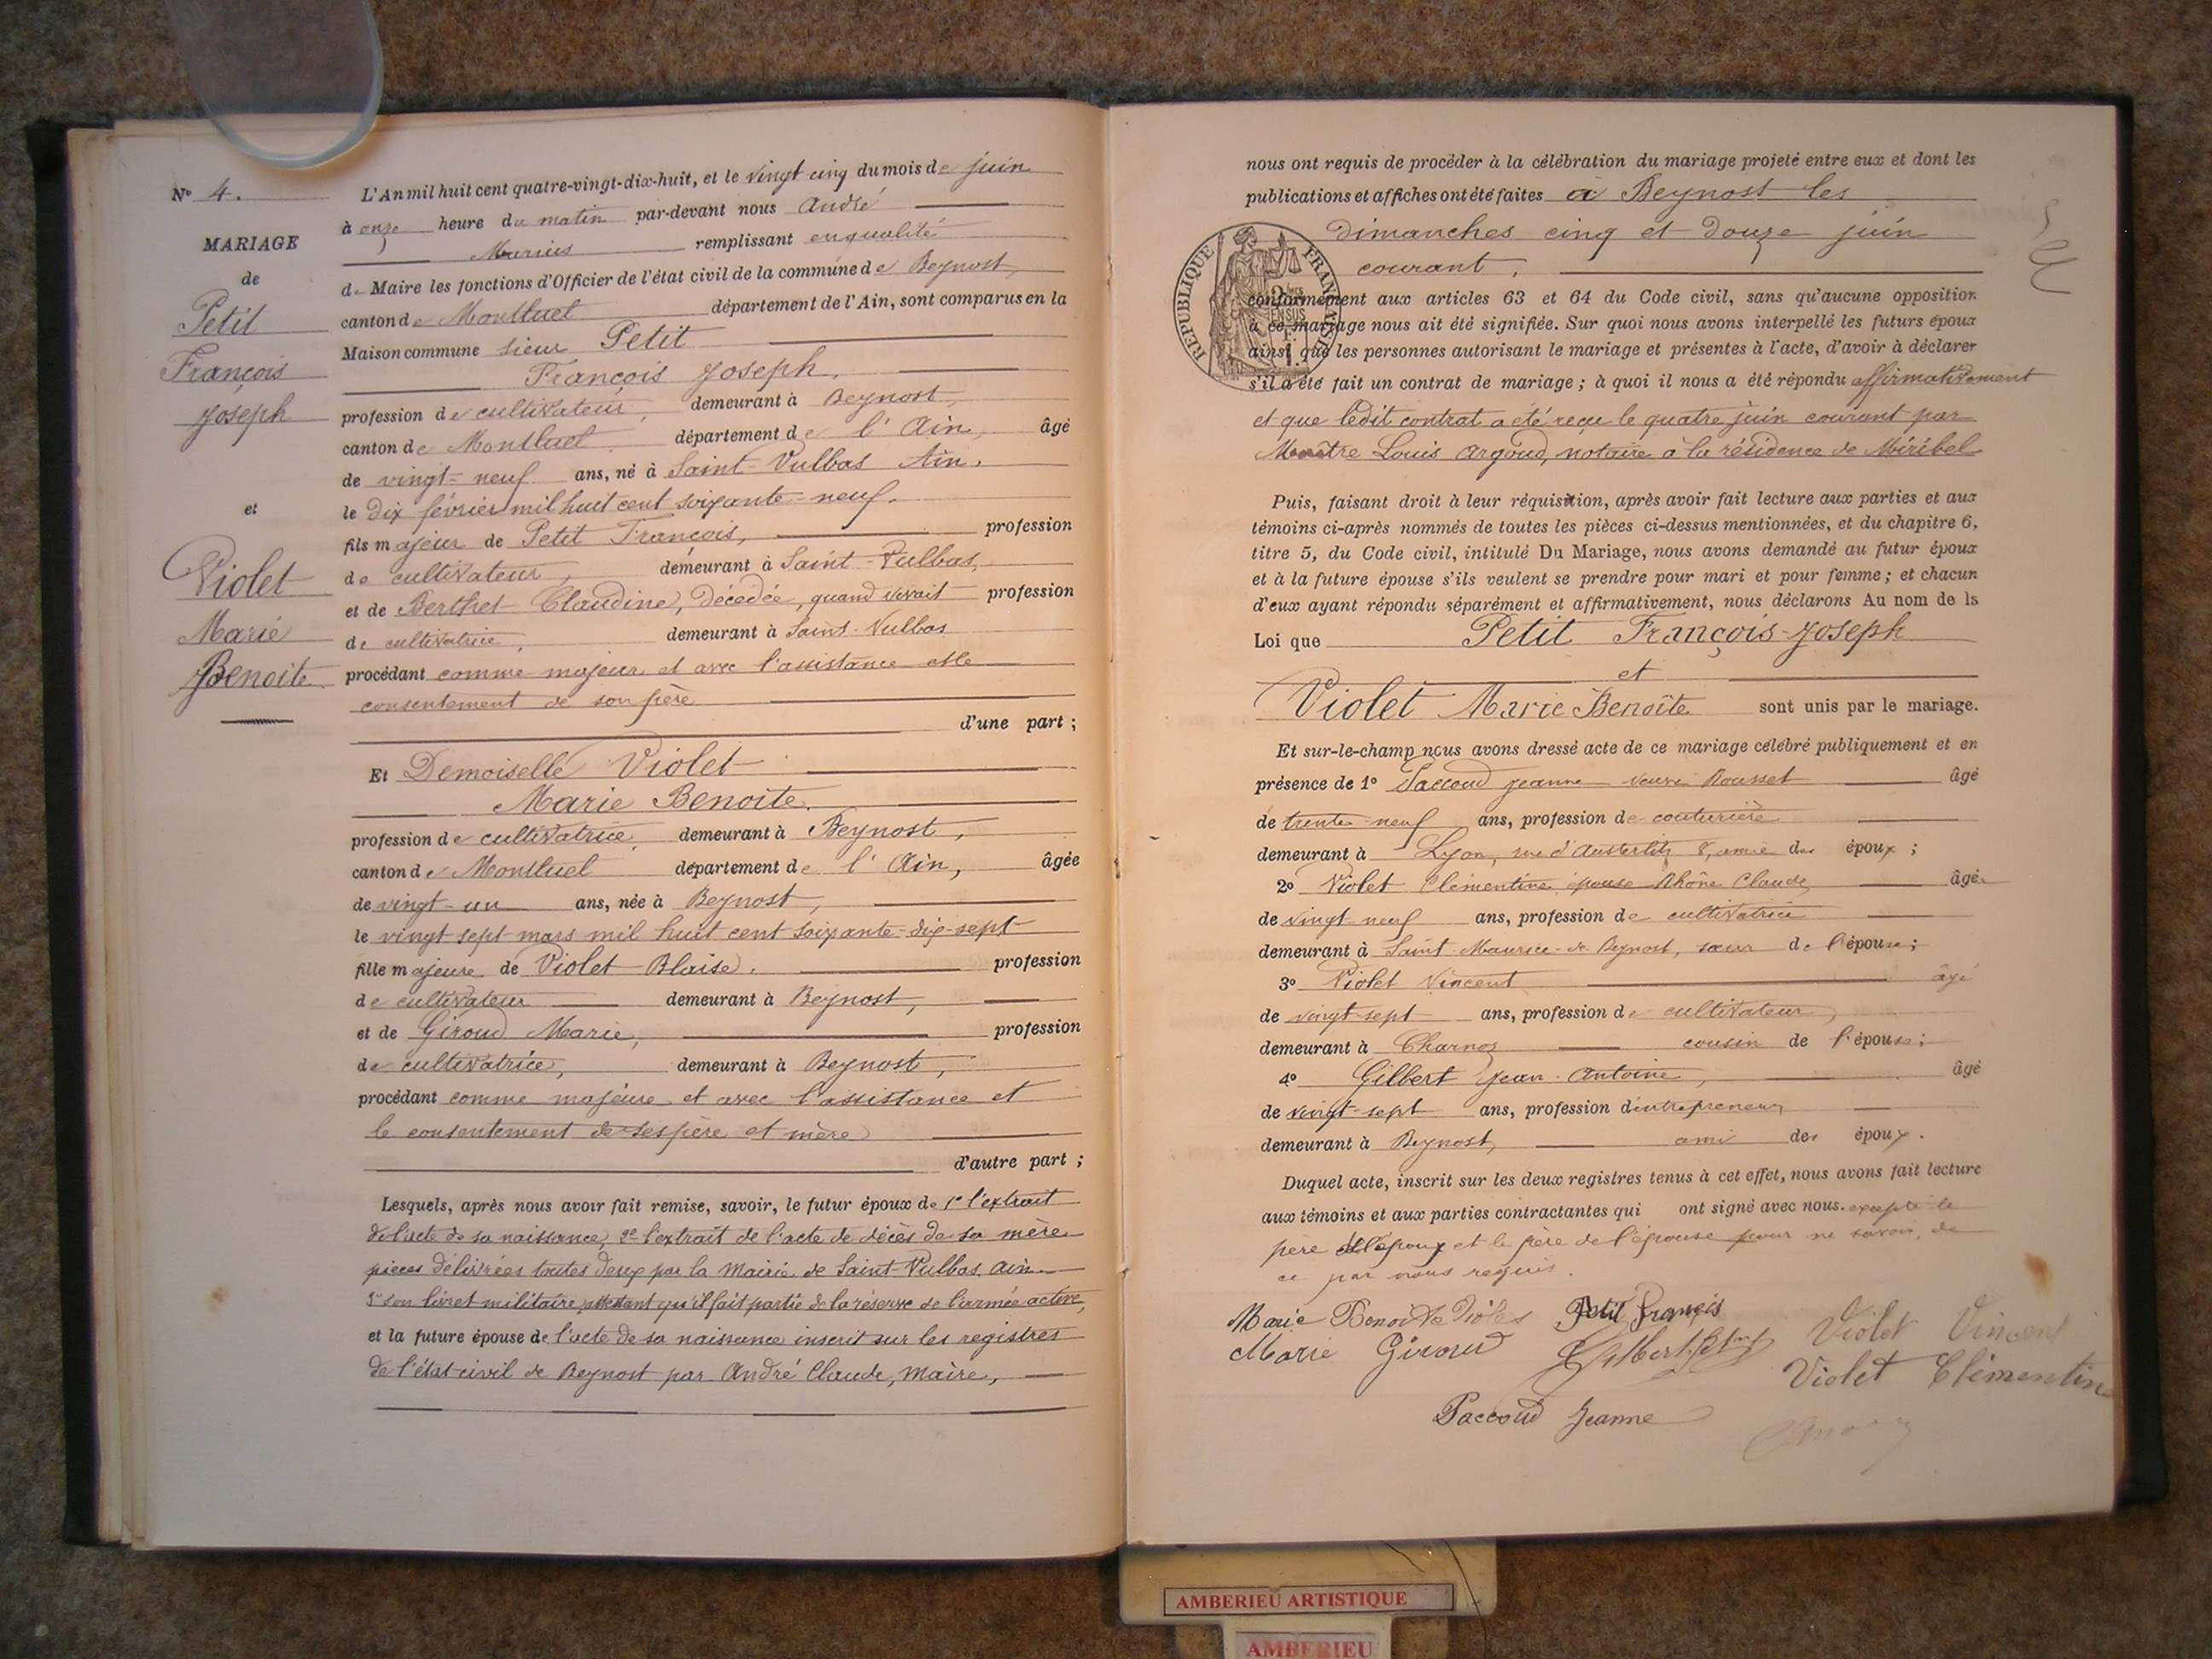 N° 4.
MARIAGE
de
Petit
François
Joseph
et
Violet
Marie
Benoite
L'An mil huit cent quatre-vingt-dix-huit, et le vingt cinq du mois de juin
à onze heure du matin par-devant nous André
Marius remplissant en qualité
de Maire les fonctions d'Officier de l'état civil de la commune de Beynost,
canton de Montluel département de l'Ain, sont comparus en la
Maison commune sieur Petit
François Joseph,
profession de cultivateur, demeurant à Beynost,
canton de Montluel département de l'Ain, âgé
de vingt-neuf ans, né à Saint-Vulbas Ain,
le dix février mil huit cent soixante-neuf.
fils majeur de Petit François, profession
de cultivateur, demeurant à Saint-Vulbas,
et de Berthet Claudine, décédée, quand vivait profession
de cultivatrice, demeurant à Saint-Vulbas
procédant comme majeur et avec l'assistance et le
consentement de son père
d'une part ;
Et Demoiselle Violet
Marie Benoite.
profession de cultivatrice, demeurant à Beynost,
canton de Montluel département de l'Ain, âgée
de vingt-un ans, née à Beynost,
le vingt sept mars mil huit cent soixante-dix-sept
fille majeure de Violet Blaise, profession
de cultivateur demeurant à Beynost,
et de Giroud Marie, profession
de cultivatrice, demeurant à Beynost,
procédant comme majeure et avec l'assistance et
le consentement de ses père et mère
d'autre part ;
Lesquels, après nous avoir fait remise, savoir, le futur époux de 1° l'extrait
de l'acte de sa naissance, 2° l'extrait de l'acte de décès de sa mère
pièces délivrées toutes deux par la Mairie de Saint-Vulbas Ain
3° son livret militaire attestant qu'il fait partie de la réserve de l'armée active,
et la future épouse de l'acte de sa naissance inscrit sur les registres
de l'état-civil de Beynost par André Claude, Maire,
nous ont requis de procéder à la célébration du mariage projeté entre eux et dont les
publications et affiches ont été faites à Beynost les
dimanches cinq et douze juin
courant,
RÉPUBLIQUE FRANÇAISE
conformément aux articles 63 et 64 du Code civil, sans qu'aucune opposition
à ce mariage nous ait été signifiée. Sur quoi nous avons interpellé les futurs époux
ainsi que les personnes autorisant le mariage et présentes à l'acte, d'avoir à déclarer
s'il a été fait un contrat de mariage ; à quoi il nous a été répondu affirmativement
et que ledit contrat a été reçu le quatre juin courant par
Maître Louis Argoud, notaire à la résidence de Miribel
Puis, faisant droit à leur réquisition, après avoir fait lecture aux parties et aux
témoins ci-après nommés de toutes les pièces ci-dessus mentionnées, et du chapitre 6,
titre 5, du Code civil, intitulé Du Mariage, nous avons demandé au futur époux
et à la future épouse s'ils veulent se prendre pour mari et pour femme ; et chacun
d'eux ayant répondu séparément et affirmativement, nous déclarons Au nom de la
Loi que Petit François-Joseph
et
Violet Marie Benoîte sont unis par le mariage.
Et sur-le-champ nous avons dressé acte de ce mariage célébré publiquement et en
présence de 1° Paccoud Jeanne veuve Rousset âgé
de trente-neuf ans, profession de couturière
demeurant à Lyon, rue d'Austerlitz 8, amie des époux ;
2° Violet Clémentine épouse Rhône Claude âgée
de vingt-neuf ans, profession de cultivatrice
demeurant à Saint-Maurice-de-Beynost, sœur de l'épouse ;
3° Violet Vincent âgé
de vingt-sept ans, profession de cultivateur,
demeurant à Charnoz cousin de l'épouse ;
4° Gilbert Jean-Antoine, âgé
de vingt-sept ans, profession d'entrepreneur
demeurant à Beynost, ami des époux.
Duquel acte, inscrit sur les deux registres tenus à cet effet, nous avons fait lecture
aux témoins et aux parties contractantes qui ont signé avec nous. excepté le
père de l'époux et le père de l'épouse pour ne savoir, de
ce par nous requis.
Marie Benoite Violet Petit François
Marie Giroud Gilbert Violet Vincent
Violet Clémentine
Paccoud Jeanne
AMBERIEU ARTISTIQUE
AMBERIEU